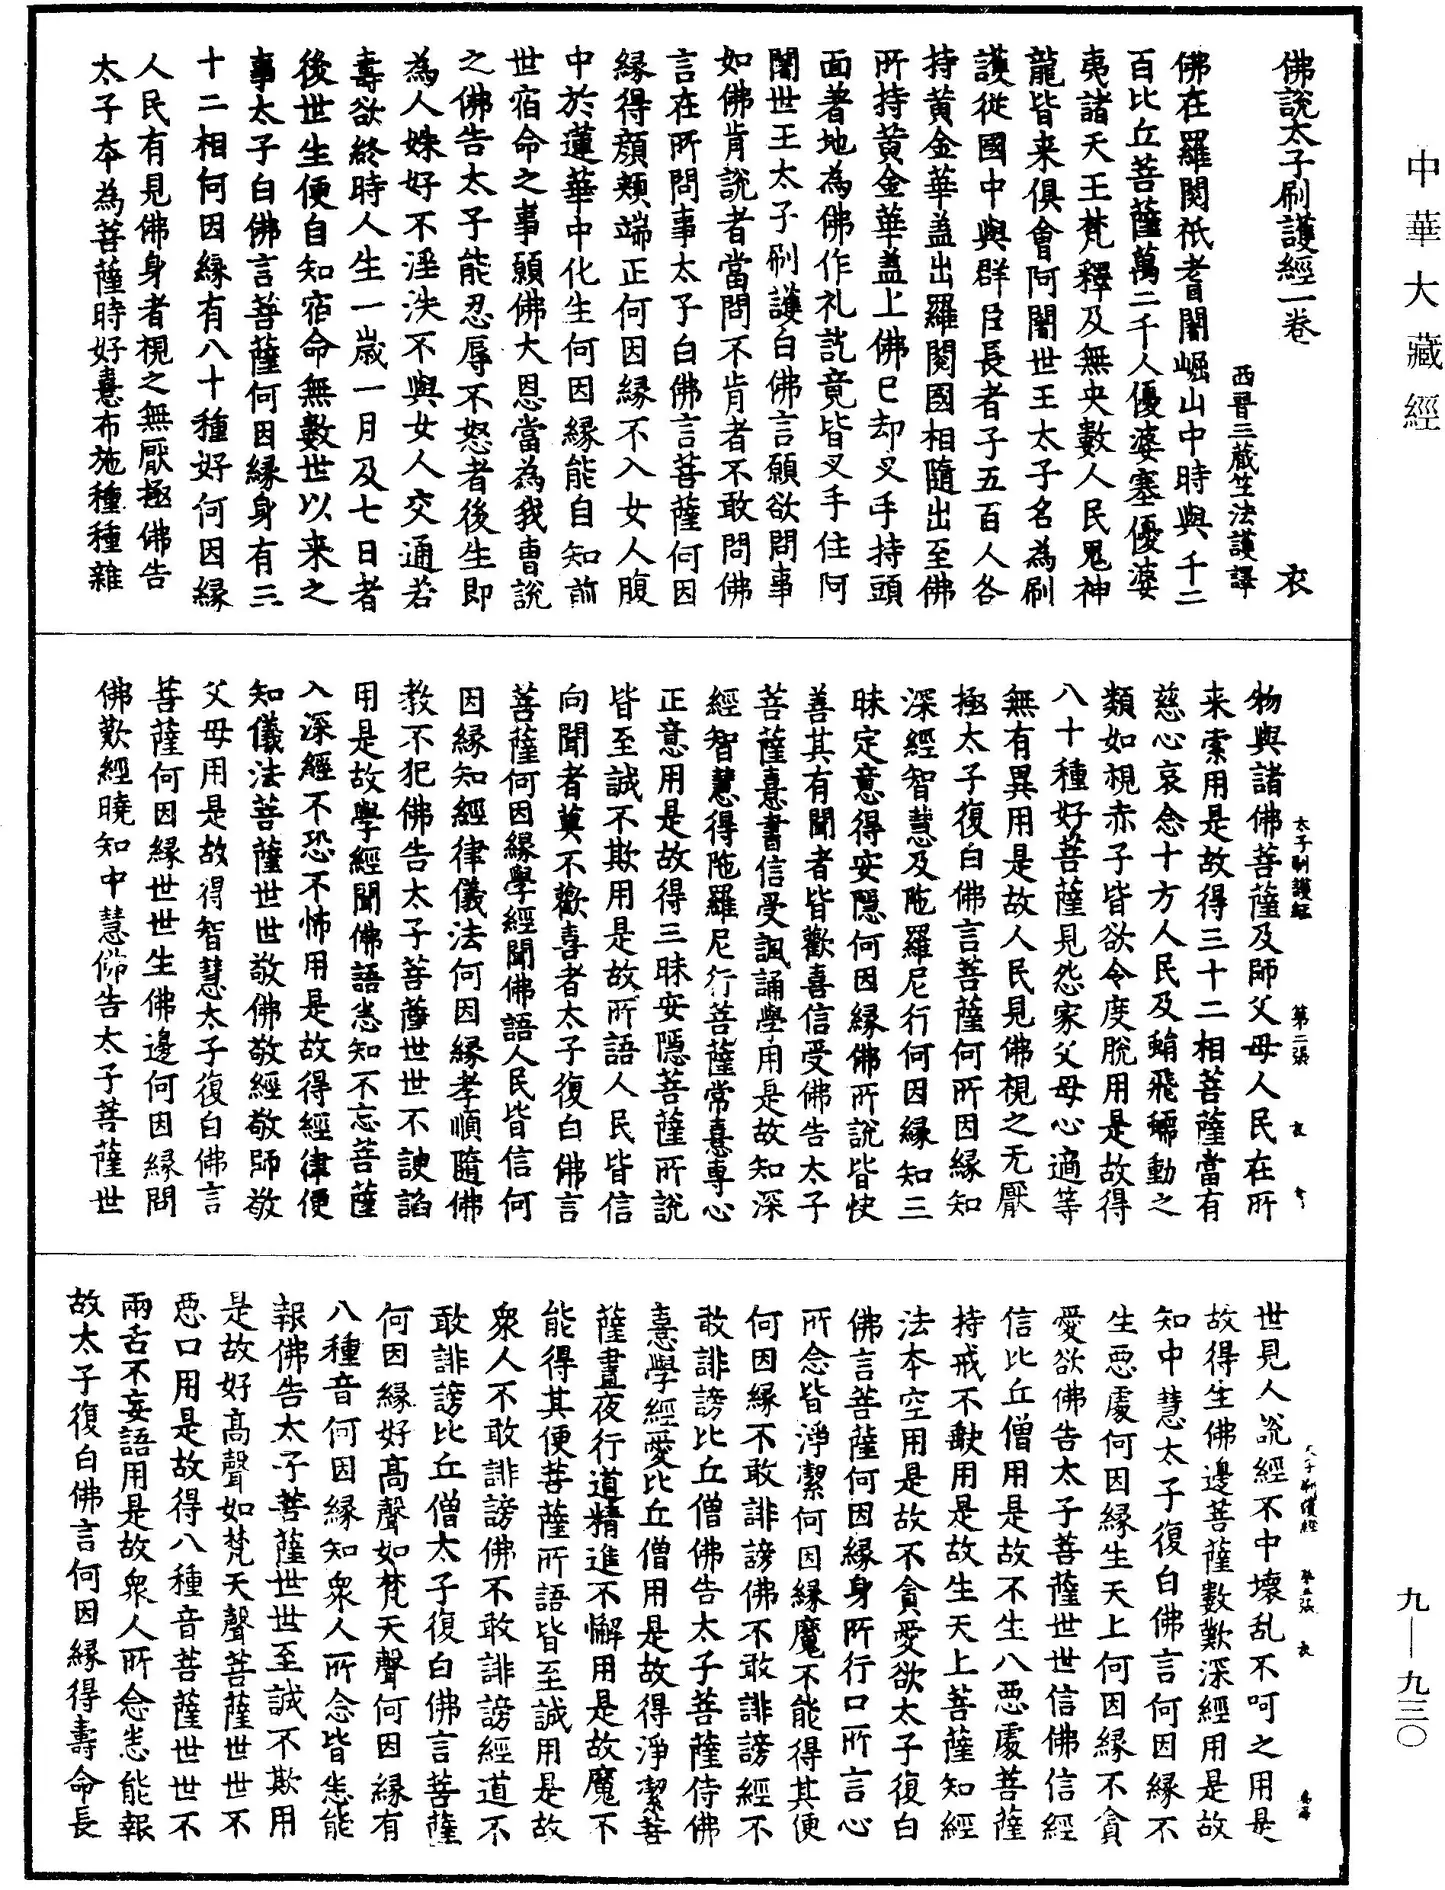 中華大藏經
佛說太子刷護經一卷 衣
西晉三藏竺法護譯
佛在羅閱祇耆闍崛山中時與千二
百比丘菩薩萬二千人優婆塞優婆
夷諸天王梵釋及無央數人民鬼神
龍皆来俱會阿闍世王太子名為刷
護從國中與群臣長者子五百人各
持黃金華盖出羅閱國相隨出至佛
所持黃金華盖上佛已却叉手持頭
面著地為佛作礼訖竟皆叉手住阿
闍世王太子刷護白佛言願欲問事
如佛肯說者當問不肯者不敢問佛
言在所問事太子白佛言菩薩何因
緣得顏頰端正何因緣不入女人腹
中於蓮華中化生何因緣能自知前
世宿命之事願佛大恩當為我曹說
之佛告太子能忍辱不怒者後生即
為人姝好不淫泆不與女人交通若
壽欲終時人生一歲一月及七日者
後世生便自知宿命無數世以来之
事太子白佛言菩薩何因緣身有三
十二相何因緣有八十種好何因緣
人民有見佛身者視之無厭極佛告
太子本為菩薩時好憙布施種種雜
太子刷護經 第二張 衣
物與諸佛菩薩及師父母人民在所
来索用是故得三十二相菩薩當有
慈心哀念十方人民及蜎飛蠕動之
類如視赤子皆欲令度脫用是故得
八十種好菩薩見怨家父母心適等
無有異用是故人民見佛視之无厭
極太子復白佛言菩薩何所因緣知
深經智慧及陁羅尼行何因緣知三
昧定意得安隱何因緣佛所說皆快
善其有聞者皆歡喜信受佛告太子
菩薩憙書信受諷誦學用是故知深
經智慧得陁羅尼行菩薩常憙專心
正意用是故得三昧安隱菩薩所說
皆至誠不欺用是故所語人民皆信
向聞者莫不歡喜者太子復白佛言
菩薩何因緣學經聞佛語人民皆信何
因緣知經律儀法何因緣孝順隨佛
教不犯佛告太子菩薩世世不諛諂
用是故學經聞佛語悉知不忘菩薩
入深經不恐不怖用是故得經律便
知儀法菩薩世世敬佛敬經敬師敬
父母用是故得智慧太子復白佛言
菩薩何因緣世世生佛邊何因緣問
佛歎經曉知中慧佛告太子菩薩世
太子刷護經 第三張 衣
世見人說經不中壞乱不呵之用是
故得生佛邊菩薩數歎深經用是故
知中慧太子復白佛言何因緣不
生惡處何因緣生天上何因緣不貪
愛欲佛告太子菩薩世世信佛信經
信比丘僧用是故不生八惡處菩薩
持戒不虧用是故生天上菩薩知經
法本空用是故不貪愛欲太子復白
佛言菩薩何因緣身所行口所言心
所念皆淨潔何因緣魔不能得其便
何因緣不敢誹謗佛不敢誹謗經不
敢誹謗比丘僧佛告太子菩薩侍佛
憙學經愛比丘僧用是故得淨潔菩
薩晝夜行道精進不懈用是故魔不
能得其便菩薩所語皆至誠用是故
衆人不敢誹謗佛不敢誹謗經道不
敢誹謗比丘僧太子復白佛言菩薩
何因緣好高聲如梵天聲何因緣有
八種音何因緣知衆人所念皆悉能
報佛告太子菩薩世世至誠不欺用
是故好高聲如梵天聲菩薩世世不
惡口用是故得八種音菩薩世世不
兩舌不妄語用是故衆人所念悉能報
故太子復白佛言何因緣得壽命長
九—九三〇